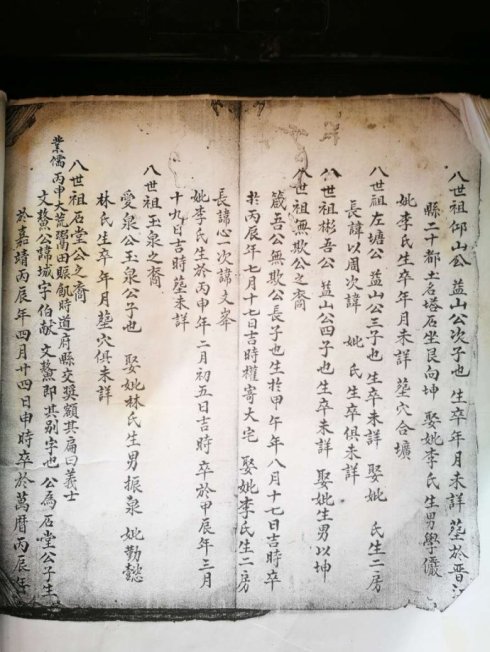 八世祖仰山公 益山公次子也 生卒年月未詳 葬於晋江
縣二十都土名塔石坐艮向坤 娶妣李氏生男學儼
妣李氏生卒年月未詳 葬穴合壙
八世祖左塘公 益山公三子也 生卒未詳 娶妣 氏生二房
長諱以周次諱 妣 氏生卒俱未詳
八世祖彬吾公 益山公四子也 生卒未詳 娶妣生男以坤
八世祖無欺公之裔
箴吾公無欺公長子也 生於甲午年八月十七日吉時 卒
於丙辰年七月十七日吉時 權寄大宅 娶妣李氏生二房
長諱心一 次諱文峯
妣李氏生於丙申年二月初五日吉時 卒於甲辰年三月
十九日吉時 葬未詳
八世祖玉泉之裔
愛泉公玉泉公子也 娶妣林氏生男振泉 妣勤懿
林氏生卒年月葬穴俱未詳
八世祖石堂公之裔
業儒丙申大荒鬻田賑飢時道府縣交奬額其扁曰義士
文鰲公諱城字伯献 文鰲即其别字也 公為石堂公子 生
於嘉靖丙辰年四月廿四日申時 卒於萬曆丙辰年